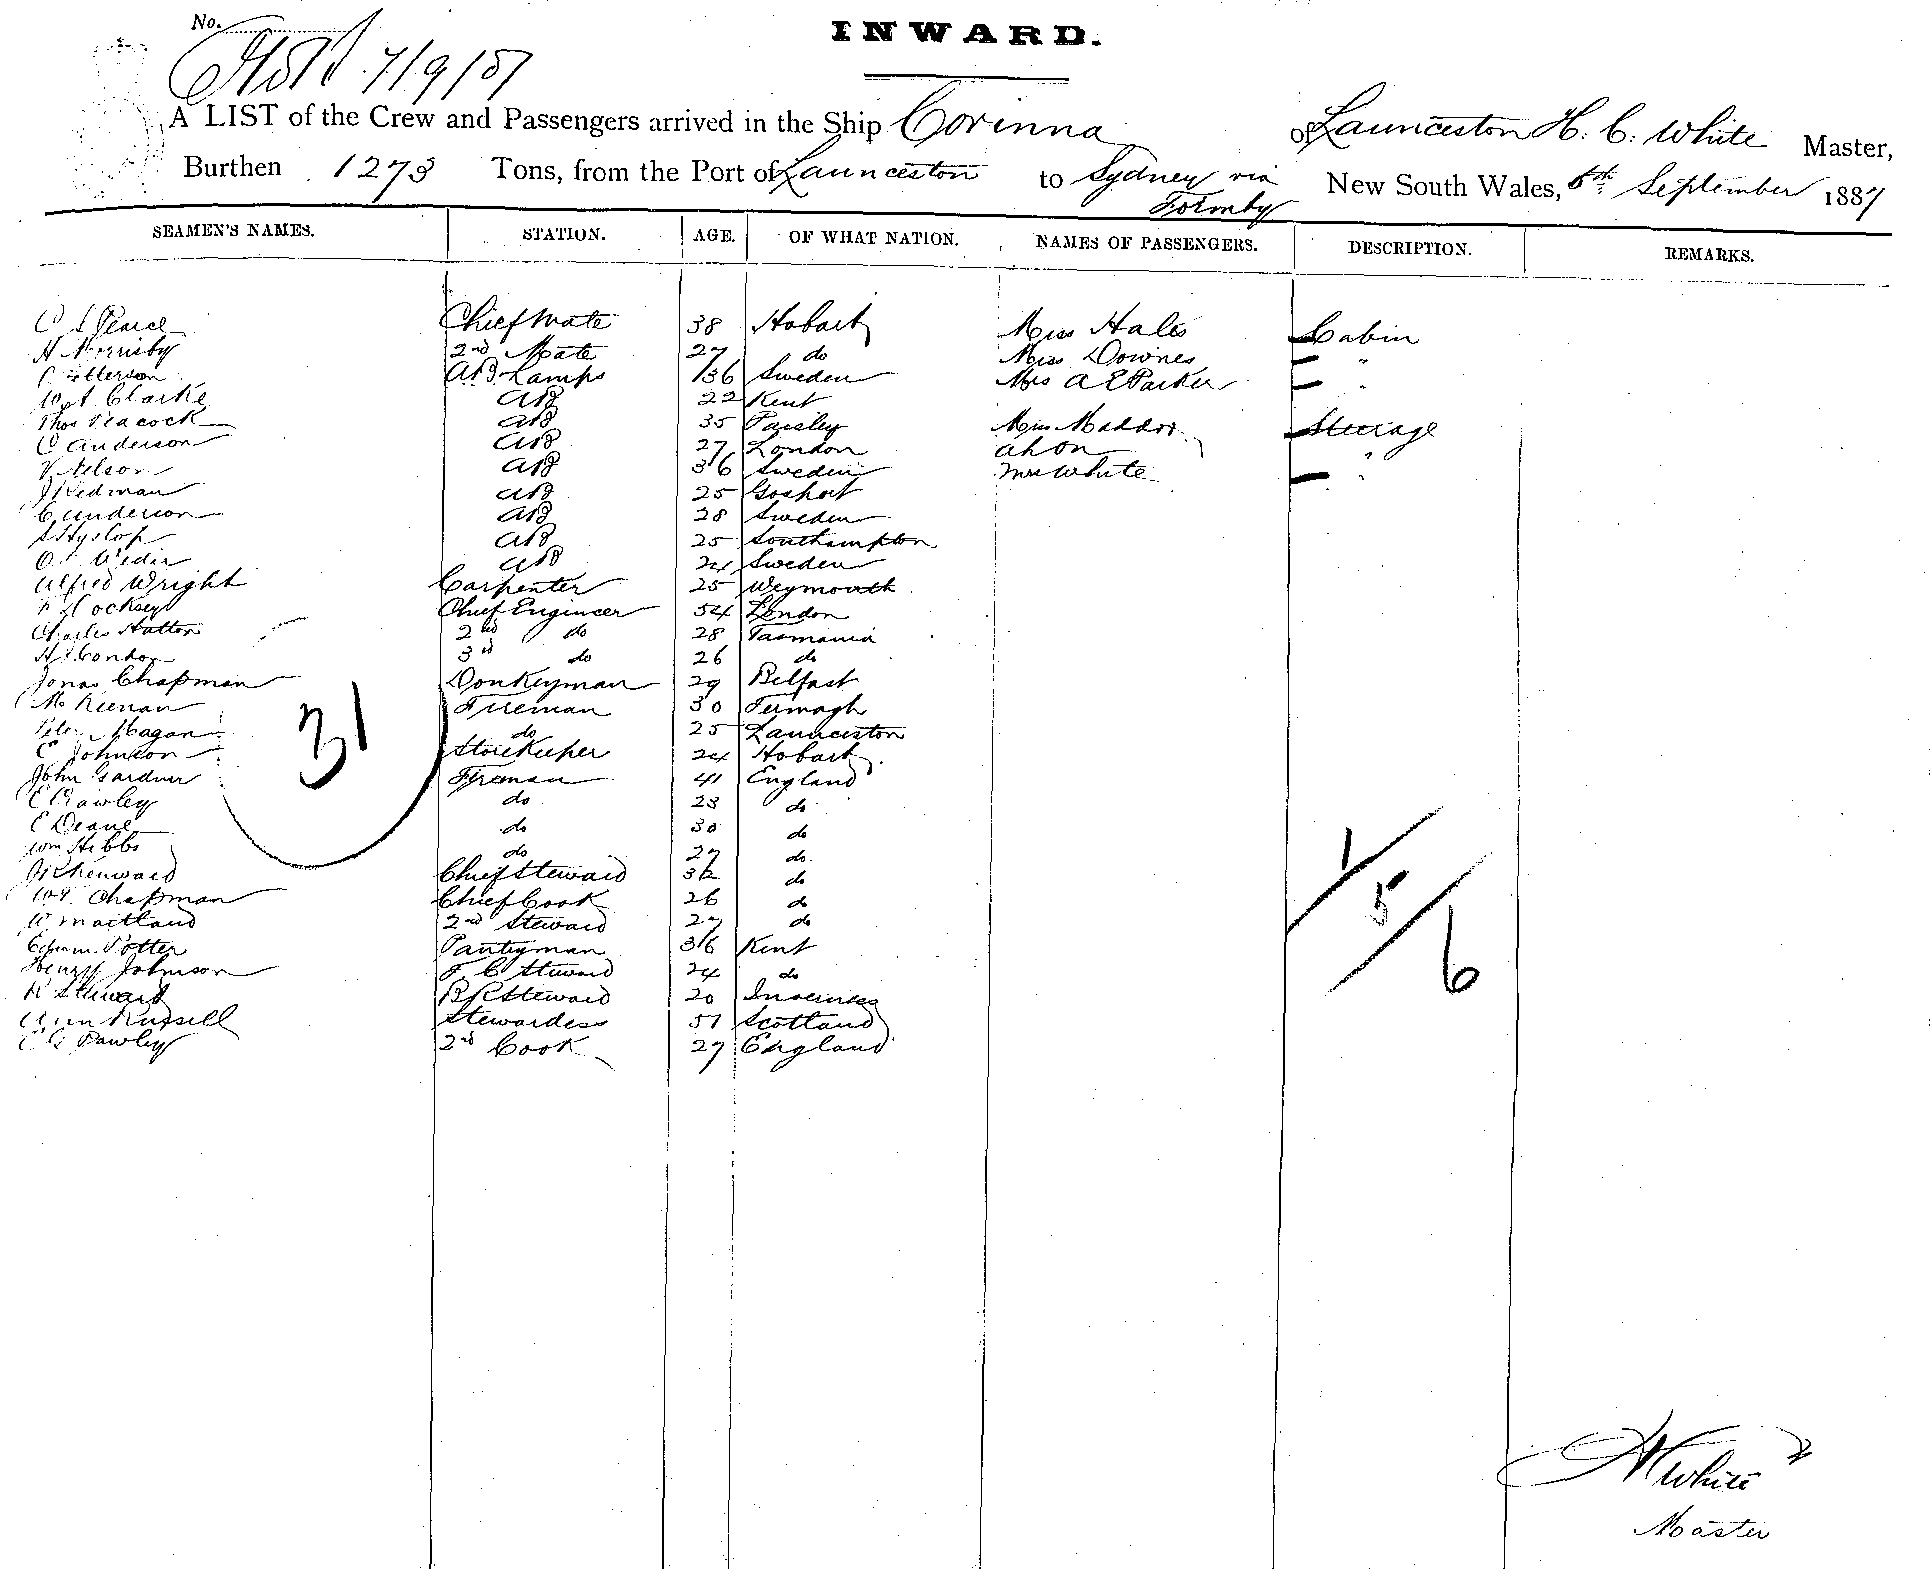 No.
7/9/87
INWARD.
A LIST of the Crew and Passengers arrived in the Ship Corinna of Launceston H. C. White Master,
Burthen 1273 Tons, from the Port of Launceston to Sydney via Formby New South Wales, 6th September 1887
SEAMEN'S NAMES. STATION. AGE. OF WHAT NATION. NAMES OF PASSENGERS. DESCRIPTION. REMARKS.
C S Pearce Chief Mate 38 Hobart Miss Hales Cabin
H Mornisby 2nd Mate 27 do Miss Downes "
Patterson AB Lamps 36 Sweden Mrs A E Parker "
Clarke AB 22 Kent
Thos Peacock AB 35 Paisley Miss Maddox Steerage
C Anderson AB 27 London Ah On "
V Nelson AB 36 Sweden Mrs White "
J Redman AB 25 Gosport
C Anderson AB 28 Sweden
S Hyslop AB 25 Southampton
AB 24 Sweden
Alfred Wright Carpenter 25 Weymouth
Cocksey Chief Engineer 54 London
Charles Hatton 2nd do 28 Tasmania
3rd do 26 do
Jonas Chapman Donkeyman 29 Belfast
Mc Keenan Fireman 30 Fermagh
Peter Magan do 25 Launceston
C Johnson Storekeeper 24 Hobart
John Gardner Fireman 41 England
E Rawley do 23 do
E Deane do 30 do
Wm Hibbs do 27 do
J R Kenward Chief Steward 32 do
Chapman Chief Cook 26 do
W Maitland 2nd Steward 27 do
Potter Pantryman 36 Kent
Henry Johnson F. C Steward 24 do
R Steward B R Steward 20 Inverness
Ann Russell Stewardess 51 Scotland
E G Pawley 2nd Cook 27 England
31
1/5/6
H C White
Master